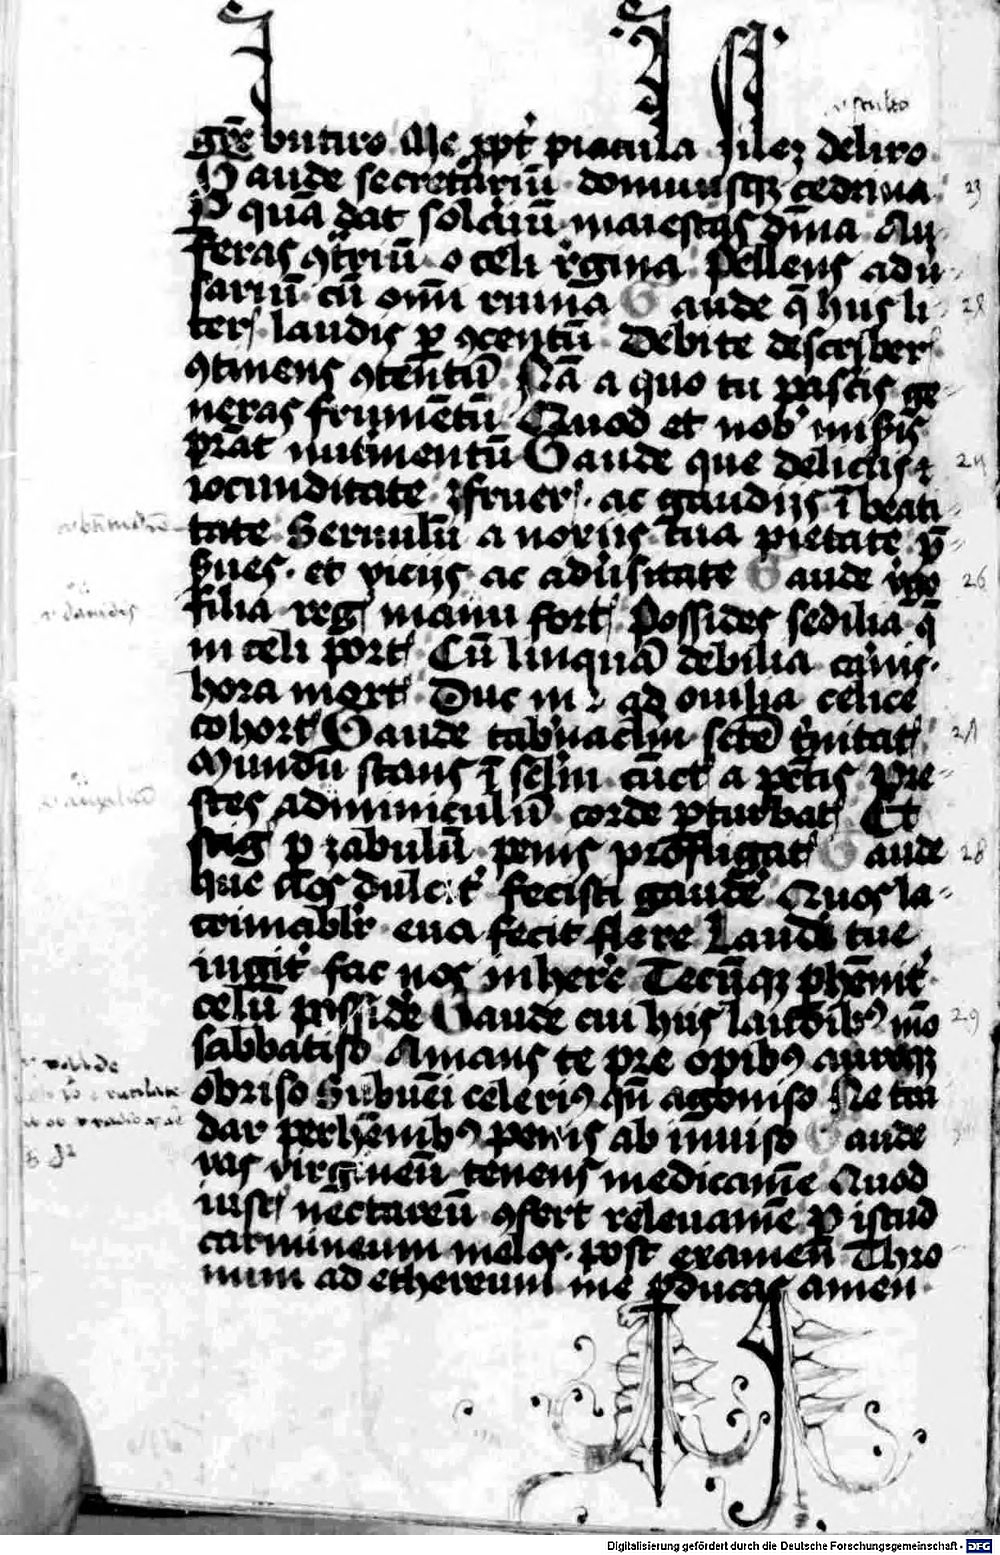 v sculto
gēre butiro Me ꝓpt' piacula silez deliro
Gaude secretariū domuusqꝫ cedrina 23
P quā dat solaciū maiestas dīna Au-
feras ꝯtrariū o celi r̄gina Pellens adu-
sariū cū omī ruina Gaude q̄ huꝰ li-
ter laudis ꝑ ꝯcentū Debite describer
ꝯtinens ꝯtentū Nā a quo tu pascis ge-
neras frumētū Quod et nob'
prāt nutimentū Gaude que deliciis ⁊ 24
iocunditate ꝑfruer ac gaudiis ī beati-
tate Seruulū a noxiis tua pietate p̄-
serues et viciis ac aduˢsitate Gaude v̄go 26
filia reg manu fort Possides sedilia q̄
in celi port Cū linquā debilia carnis
hora mort Duc me ad ouilia celice
cohort Gaude tabnaclm scte trinitat 27
Mundū stans ī sclm cūct a pctis Pre-
stes adminiculū corde ꝑturbat Et
stig ꝑ zabulū penis profligat Gaude 28
huc dulcit' fecisti gaudē Quos la-
crimablr eua fecit flere Laudi tue
iugit' fac nos inherē Tecūqꝫ phēnit'
celū possidē Gaude cui huiꝰ laudibꝰ mō 29
sabbatiso Amans te pre opibꝰ auroqꝫ
obriso Subueni celeriꝰ qn̄ agoniso Ne tra
dar perhēnibꝰ penis ab inuiso Gaude
vas virgineū tenens medicamē Quod
iust nectareū ꝯfert releuamē P istud
carmineum melos post examen Thro
num ad ethereum me ꝑducas amen
Digitalisierung gefördert durch die Deutsche Forschungsgemeinschaft - DFG